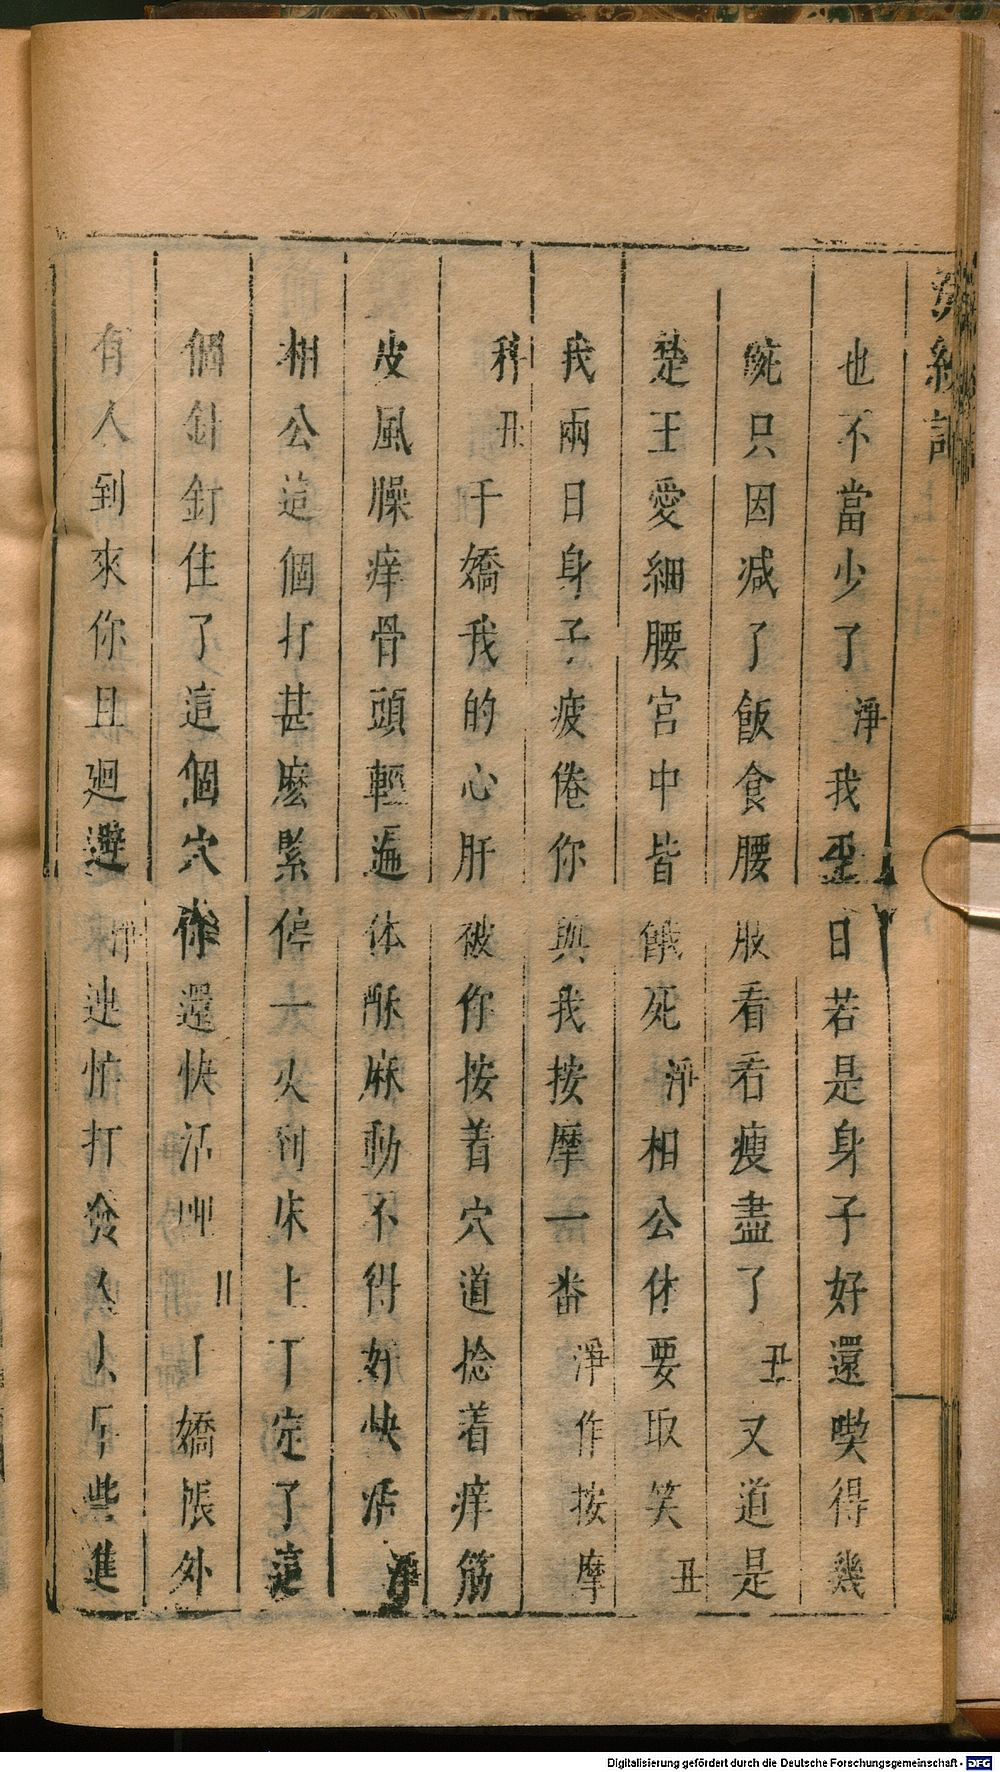 浣紗記
也不當少了淨我歪日若是身子好還喫得幾
碗只因减了飯食腰股看看瘦盡了丑又道是
楚王愛細腰宮中皆餓死淨相公休要取笑丑
我兩日身子疲倦你與我按摩一番淨作按摩
科丑千嬌我的心肝被你按着穴道捻着痒筋
皮風臊痒骨頭輕遍体酥麻動不得好快活淨
相公這個打甚麽緊停一大火到床上丁定了這
個針釘住了這個穴你還快活丑千嬌帳外
有人到來你且廻避淨連忙打發人
些進
Digitalisierung gefördert durch die Deutsche Forschungsgemeinschaft - DFG